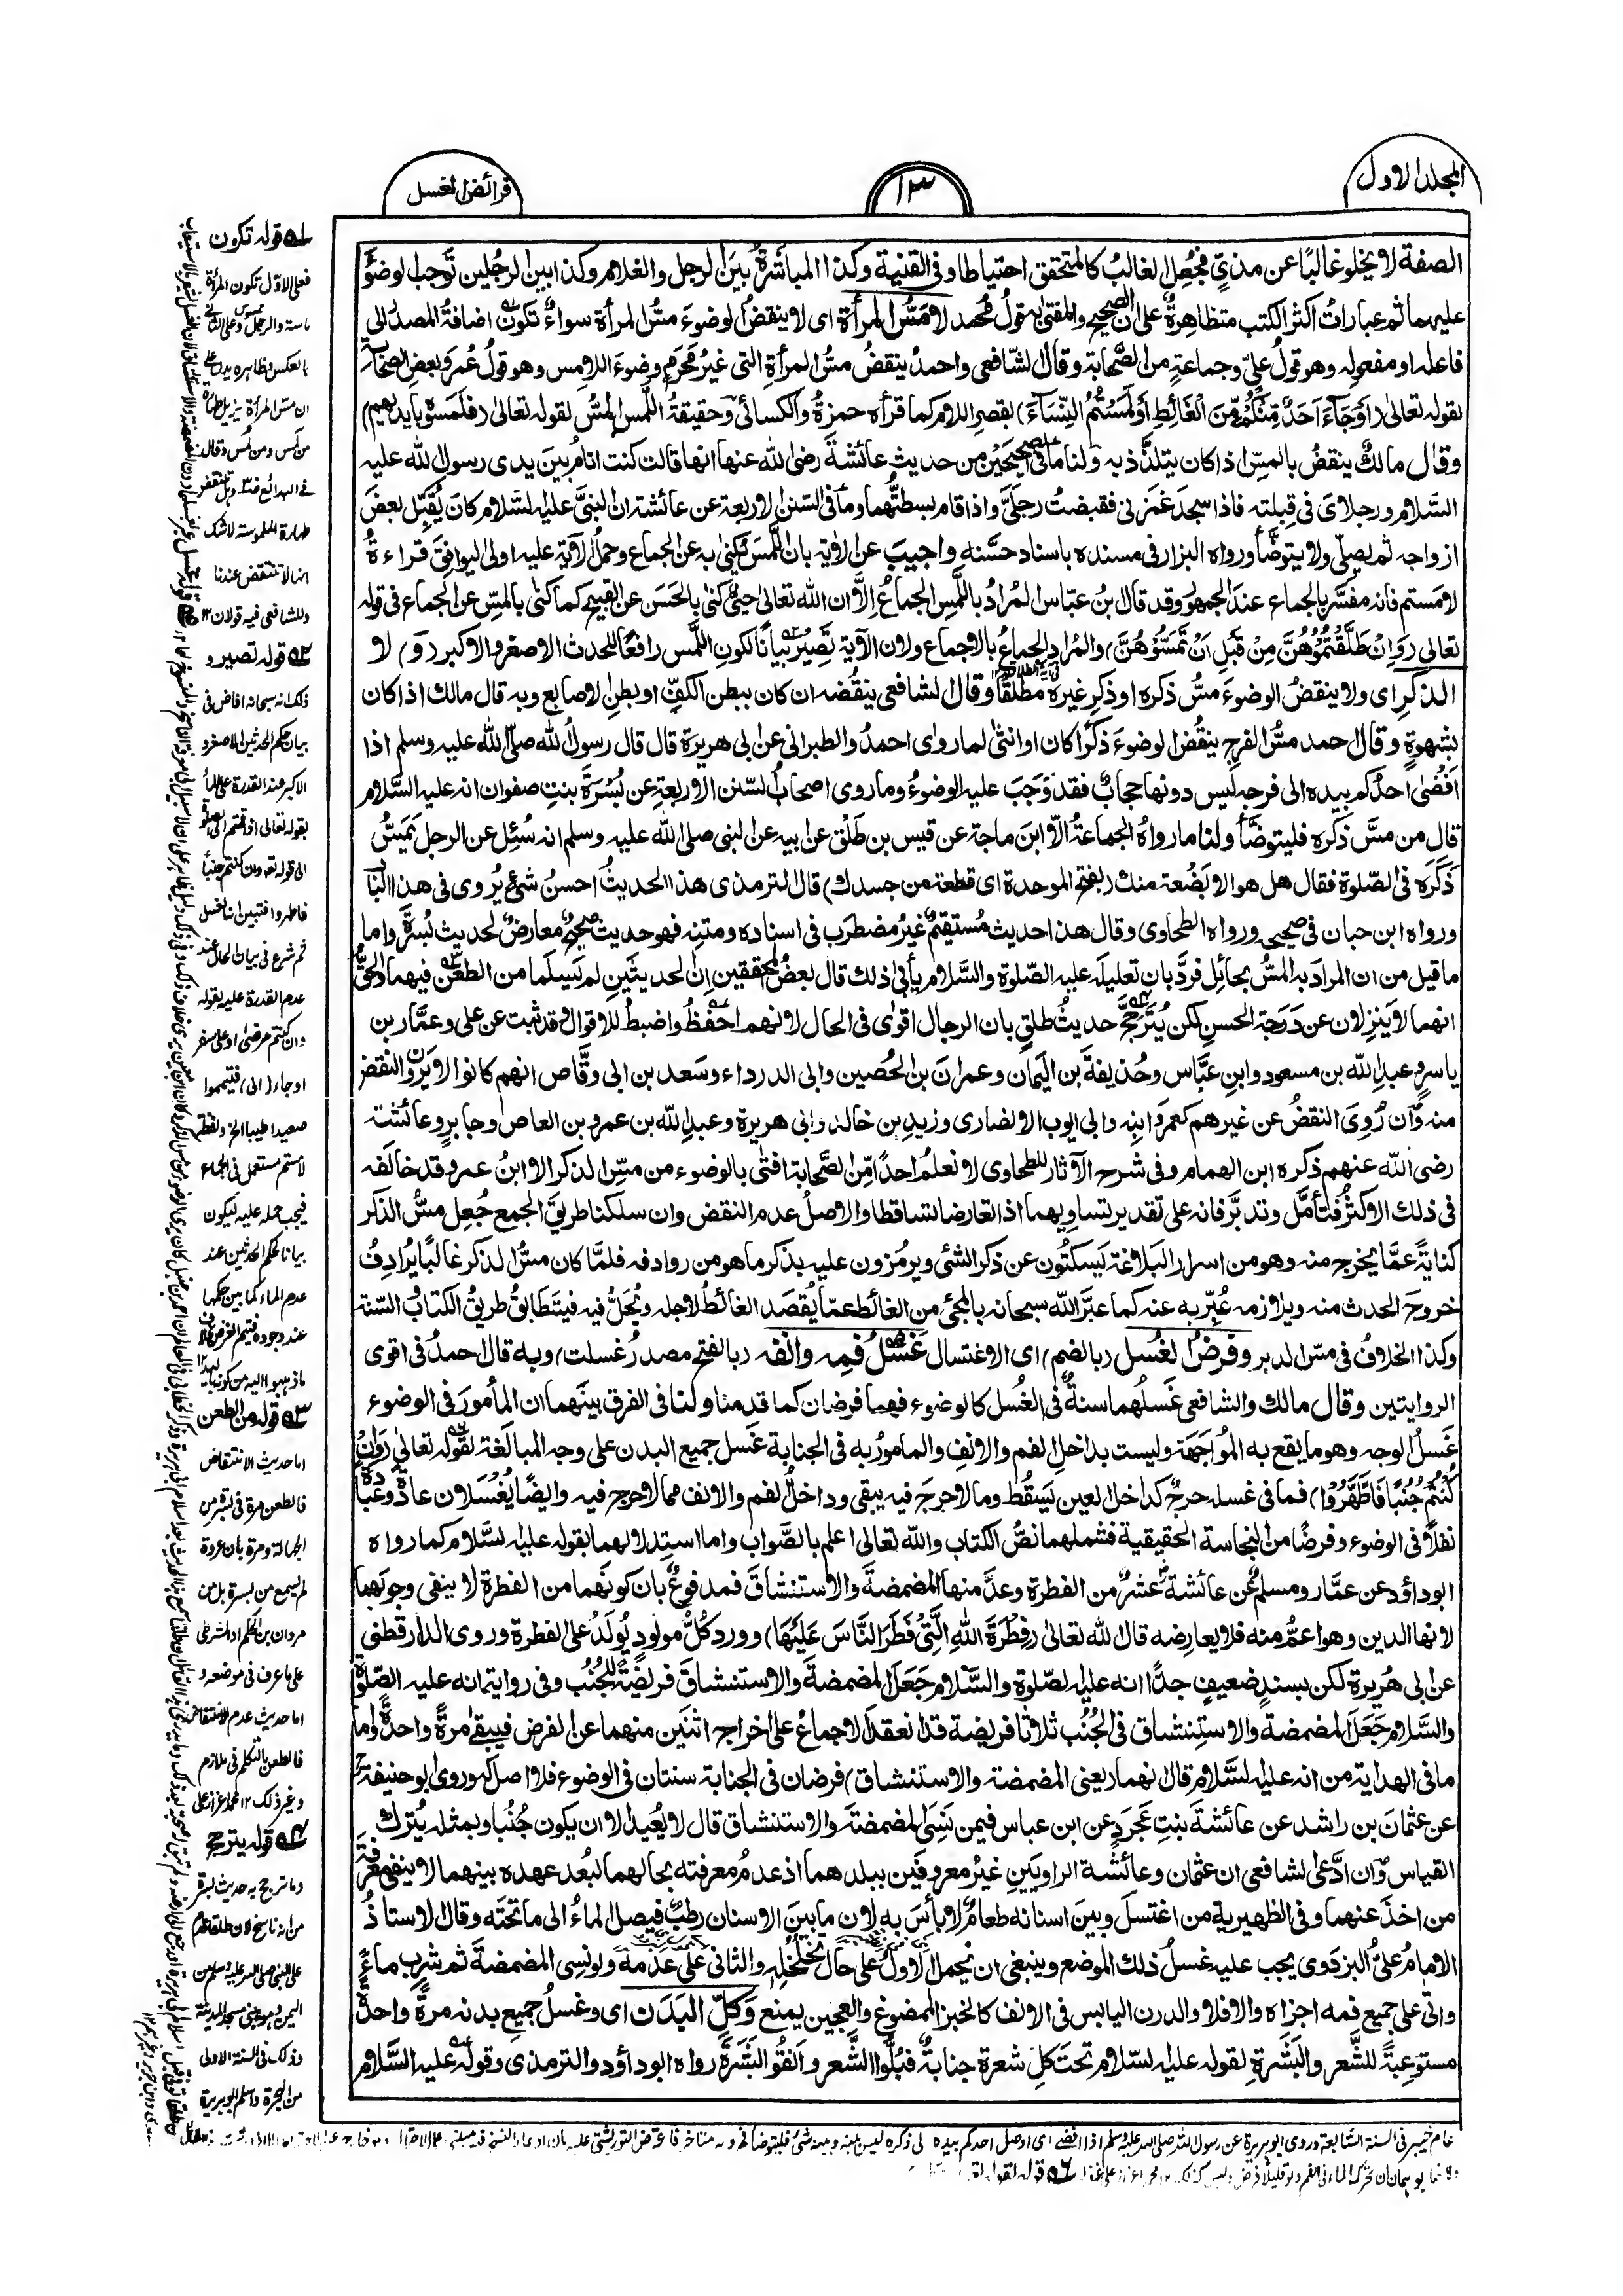 المجلد الاول
١٣
فرائض الغسل
الصفة لا يخلو غالبًا عن مذيٍ فجُعِل الغالبُ كالمتحقق احتياطا وفى القنية وكذا المباشرةُ بينَ الرجل والغلام وكذا بين الرجُلين تُوجب الوضؤَ
عليهما ثم عباراتُ اكثر الكتب متظاهرةٌ على ان الصحيح والمفتى به قولُ محمد لا مَسُّ المرأة اى لا ينقضُ الوضوءَ مسُّ المرأة سواءٌ تكون اضافةُ المصدر الى
فاعله او مفعوله وهو قولُ علىّ وجماعةٍ من الصحابة وقال الشافعى واحمدُ ينقضُ مسُّ المرأةِ التى غيرُ مَحْرَمٍ وضوءَ اللامس وهو قولُ عُمرَ وبعضِ الصحابة
لقوله تعالىٰ (اَوْجَآءَ اَحَدٌ مِّنْكُمْ مِّنَ الْغَآئِطِ اَوْلَمَسْتُمُ النِّسَآءَ) بقصر اللام كما قرأه حمزةُ والكسائى وحقيقةُ اللَّمس المسُّ لقوله تعالىٰ (فلمسوه بايديهم)
وقال مالكٌ ينقضُ بالمسِّ اذا كان يتلذّذ به ولنا ما فى الصحيحَيْن من حديث عائشةَ رضى الله عنها انها قالت كنت انامُ بينَ يدى رسول الله عليه
السَّلام ورجلاىَ فى قِبلته فاذا سجدَ غمَزنى فقبضتُ رجلَىَّ واذا قام بسطتُّهما وما فى السنن الاربعة عن عائشة ان النبىَّ عليه السَّلام كانَ يُقَبِّل بعضَ
ازواجه ثم يصلّى ولا يتوضّأ ورواه البزار فى مسنده باسناد حسَّنه واجيبَ عن الاٰية بان اللَّمسَ يُكنىٰ به عن الجماع وحملُ الاٰية عليه اولىٰ ليوافقَ قراءةَ
لامستم فانه مفسَّر بالجماع عند الجمهور وقد قال بن عبّاس المُرادُ باللَّمس الجماعُ اِلَّا ان الله تعالىٰ حيىٌّ كنىٰ بالحَسَن عن القبيح كما كنىٰ بالمسِّ عن الجماع فى قوله
تعالى (وَاِنْ طَلَّقْتُمُوْهُنَّ مِنْ قَبْلِ اَنْ تَمَسُّوْهُنَّ) والمُراد الجماعُ بالاجماع ولان الاٰية تَصِيْرُ بيانًا لكونِ اللَّمس رافعًا للحدث الاصغر والاكبر (وَ) لا
الذكرِ اى ولا ينقضُ الوضوءَ مسُّ ذكره او ذكرِ غيره مطلقًا وقال الشافعى ينقُضه ان كان ببطن الكفّ او بطنِ الاصابع وبه قال مالك اذا كان
بشهوةٍ وقال احمد مسُّ الفرجِ ينقُض الوضوءَ ذكرًا كان او انثىٰ لما روى احمدُ والطبرانى عن ابى هريرة قال قال رسولُ الله صلّى الله عليه وسلم اذا
افضىٰ احدُكم بيده الى فرجه ليس دونها حجابٌ فقد وَجَبَ عليه الوضوءُ وما روى اصحابُ السّنن الاربعةِ عن بُسْرَةَ بنتِ صفوان انه عليه السَّلام
قال من مسَّ ذكره فليتوضّأ ولنا ما رواهُ الجماعةُ الّا ابنَ ماجة عن قيس بن طَلْق عن ابيه عن النبى صلى الله عليه وسلم انه سُئِل عن الرجل يَمَسُّ
ذكَرَه فى الصّلوة فقال هل هو الا بَضْعة منك (بفتح الموحدة اى قطعة من جسدك) قال الترمذى هذا الحديثُ احسنُ شئٍ يُروى فى هذا الباب
ورواه ابن حبان فى صحيحه ورواه الطحاوى وقال هذا حديث مُستقيمٌ غيرُ مضطرب فى اسناده ومتنِه فهو حديث صحيحٌ معارضٌ لحديث بُسرَةَ واما
ما قيل من ان المرادَ به المسُّ بحائل فرُدَّ بان تعليلَه عليه الصّلوة والسَّلام يأبىٰ ذلك قال بعضُ المحققين اِن الحديثَين لم يَسلَما من الطعن فيهما والحقُّ
انهما لا ينزِلان عن دَرَجة الحسنِ لكن يُتَرَجَّحُ حديثُ طلق بان الرجال اقوٰى فى الحال لانهم احْفَظُ واضبطُ للاقوال وقد ثبت عن على وعمَّار بن
ياسر وعبدِ الله بن مسعود وابنِ عبَّاس وحُذيفةَ بن اليَمان وعمرانَ بن الحُصين وابى الدرداء وسَعد بن ابى وقَّاص انهم كانوا لا يَرَون النقضَ
منه وَان رُوِىَ النقضُ عن غيرهم كعمرَ وابنِه وابى ايوب الانصارى وزيدِ بن خالد وابى هريرة وعبدِ الله بن عمرو بن العاص وجابرٍ وعائشة
رضى الله عنهم ذكره ابن الهمام وفى شرح الآثار للطحاوى لا نعلمُ احدًا مِّن الصَّحابة افتىٰ بالوضوء من مسِّ الذكر الا ابنُ عمر وقد خالفه
فى ذلك الاكثرُ فتأمَّل وتدبَّر فانه على تقدير تساويهما اذ تعارضا تساقطا والاصلُ عدم النقض وان سلكنا طريقَ الجمع جُعِل مسُّ الذكر
كنايةً عمَّا يخرج منه وهو من اسرار البَلاغة يَسكتُون عن ذكر الشئى ويرمُزون عليه بذكر ما هو من روادفه فلمَّا كان مسُّ الذكر غالبًا يُرادِفُ
خروجَ الحدث منه ويلازمه عُبِّر به عنه كما عبَّر الله سبحانه بالمجئ من الغائط عمّا يُقصَد الغائطُ لاجله ويُحَلُّ فيه فيتَطابقُ طريقُ الكتاب والسّنة
وكذا الخلافُ فى مسّ الدبر وفرضُ الغُسل (بالضم) اى الاغتسال غَسْلُ فمِه وانفه (بالفتح مصدرُ غسلت) وبه قال احمدُ فى اقوى
الروايتين وقال مالك والشافعى غَسلُهما سنةٌ فى الغُسل كالوضوء فهما فرضان كما قدمنا ولنا فى الفرق بينَهما ان المأمورَ فى الوضوء
غَسلُ الوجه وهو ما يقع به المُواجَهة وليست بداخل الفم والانفِ والمامورُ به فى الجنابة غَسل جميع البدن على وجه المبالغة لقوله تعالىٰ (وَاِنْ
كُنْتُمْ جُنُبًا فَاطَّهَّرُوْا) فما فى غسله حرجٌ كداخل العين يَسقُط وما لا حرجَ فيه يبقى وداخلُ الفم والانف مما لا حرج فيه وايضًا يُغْسَلان عادةً وعبادةً
نفلًا فى الوضوء وفرضًا من النجاسة الحقيقية فشملهما نصُّ الكتاب والله تعالىٰ اعلم بالصَّواب واما استدلالهما بقوله عليه السَّلام كما رواه
ابوداؤد عن عمَّار ومسلمٌ عن عائشة عشرٌ من الفطرة وعدَّ منها المضمضةَ والاستنشاقَ فمدفوعٌ بان كونَهما من الفطرة لا ينفى وجوبَهما
لانها الدين وهو اعمُّ منه فلا يعارضه قال الله تعالىٰ (فِطْرَةَ اللهِ الَّتِىْ فَطَرَ النَّاسَ عَلَيْهَا) وورد كُلُّ مولودٍ يُولَدُ على الفطرة وروى الدارقطنى
عن ابى هُريرة لكن بسندٍ ضعيفٍ جدًّا انه عليه الصّلوة والسَّلام جَعَلَ المضمضةَ والاستنشاقَ فريضةً للجُنُب وفى رواية انه عليه الصّلوة
والسَّلام جَعَلَ المضمضة والاستِنشاق فى الجُنُب ثلاثًا فريضة قد انعقد الاجماعُ على اخراج اثنَين منهما عن الفرض فيبقىٰ مرةً واحدةً واما
ما فى الهداية من انه عليه السَّلام قال انهما (يعنى المضمضة والاستنشاق) فرضان فى الجنابة سنتان فى الوضوء فلا اصل له وروى ابوحنيفة
عن عثمانَ بن راشد عن عائشةَ بنتِ عَجْرَدٍ عن ابن عباس فيمن نَسِىَ المضمضةَ والاستنشاق قال لا يُعيد الا ان يكون جُنُبا وبمثله يُترك
القياس وان ادَّعىٰ الشافعى ان عثمان وعائشة الراويَينِ غيرُ معروفَين ببلدهما اذ عدمُ معرفته بحالهما لبُعد عهده بينهما لا ينفى معرفةَ
من اخذَ عنهما وفى الظهيرية من اغتسلَ وبينَ اسنانه طعامٌ لا بأسَ به لان ما بينَ الاسنان رطبٌ فيصل الماءُ الى ما تحتَه وقال الاستاذُ
الامامُ علىُّ البزدَوى يجب عليه غسلُ ذلك الموضع وينبغى ان يُحمل الاولُ على حال تخلخُلِه والثانى على عدمه ولو نسى المضمضةَ ثم شرِب ماءً
واتىٰ على جميع فمه اجزاه والا فلا والدرن اليابس فى الانف كالخبز الممضوغ والعجين يمنع وَكلِّ البَدَن اى وغسلُ جميع بدنه مرةً واحدةً
مستوعِبةً للشَّعر والبَشَرةِ لقوله عليه السَّلام تحتَ كلِ شعرة جنابةٌ فبُلُّوا الشَّعر وانقُوا البَشَرةَ رواه ابوداؤد والترمذى وقوله عليه السَّلام
٥١ قوله تكون
فعلى الاول تكون المرأة
ماسة والرجل ممسوس وعلى الثانى
بالعكس وظاهره يدل على
ان مس المرأة يزيل طهارة
من لمس ومن لُمس وقال
فى البدائع وهل تنتقض
طهارة الملموسة لاشك
انها لا تنتقض عندنا
وللشافعى فيه قولان ١٢
٥٢ قوله تصير و
ذلك انه سبحانه افاض فى
بيان حكم الحدثين الاصغر و
الاكبر عند القدرة على الماء
بقوله تعالى اذا قمتم الى الصلوة
الى قوله تع وان كنتم جنبا
فاطهروا فتبين انه الغسل
ثم شرع فى بيان الحال عند
عدم القدرة عليه بقوله
وان كنتم مرضى او على سفر
او جاء (الى) فتيمموا
صعيدا طيبا الخ ولفظ
لامستم مستعمل فى الجماع
فيجب حمله عليه ليكون
بيانا لحكم الحدثين عند
عدم الماء كما بين حكمها
عند وجوده فيتم الغرض
ما ذهبوا اليه من كونه
٥٣ قوله من الطعن
اما حديث الانتقاض
فالطعن مرة فى بسرة من
الجهالة ومرة بان عروة
لم يسمع من بسرة بل من
مروان بن الحكم او الشرطى
على ما عرف فى موضعه و
اما حديث عدم الانتقاض
فالطعن بالتكلم فى ملازم
وغير ذلك ١٢ محمد اعزاز على
٥٤ قوله يترجح
وما ترجح به حديث بسرة
من انه ناسخ لان طلقا قدم
على النبى صلى الله عليه وسلم من
اليمن وهو يبنى مسجد المدينة
وذلك فى السنة الاولى
من الهجرة واسلم ابوهريرة
عام خيبر فى السنة السابعة وروى ابوهريرة عن رسول الله صلى الله عليه وسلم اذا افضى اى اوصل احدكم بيده الى ذكره ليس بينه وبينه شئ فليتوضأ
٥٦ قوله لقوله